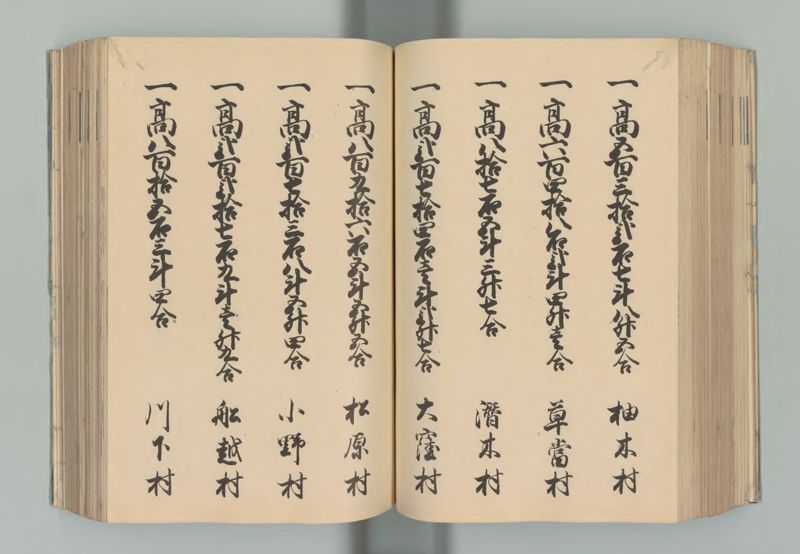 一高五百三拾弐石七斗八升五合 柚木村
一高六百四拾八石弐斗四升壱合 草當村
一高八拾七石五斗三升七合 潛木村
一高弐百七拾四石壱斗弐升七合 大窪村
一高八百五拾六石五斗五升五合 松原村
一高弐百七拾三石八斗五升四合 小野村
一高弐百弐拾七石九斗壱升九合 船越村
一高八百拾五石三斗四合 川下村